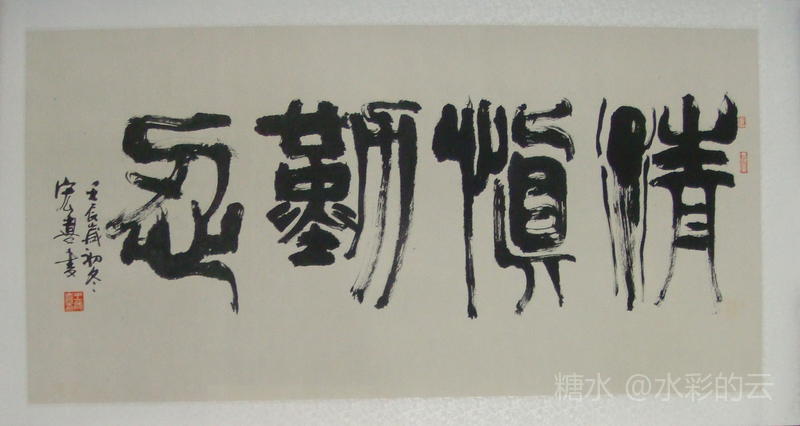 清慎勤忍
壬辰岁初冬
宏喜书
糖水 @水彩的云